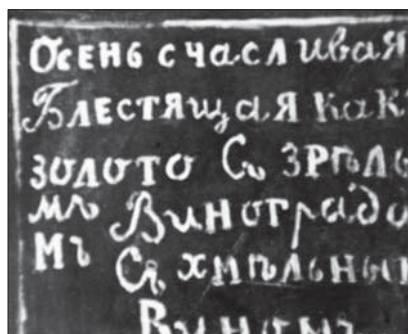 Осень счасливая
Блестящая как
золото Съ зрѣлы
мъ Виноградо
мъ
Съ хмѣльны
Виномъ